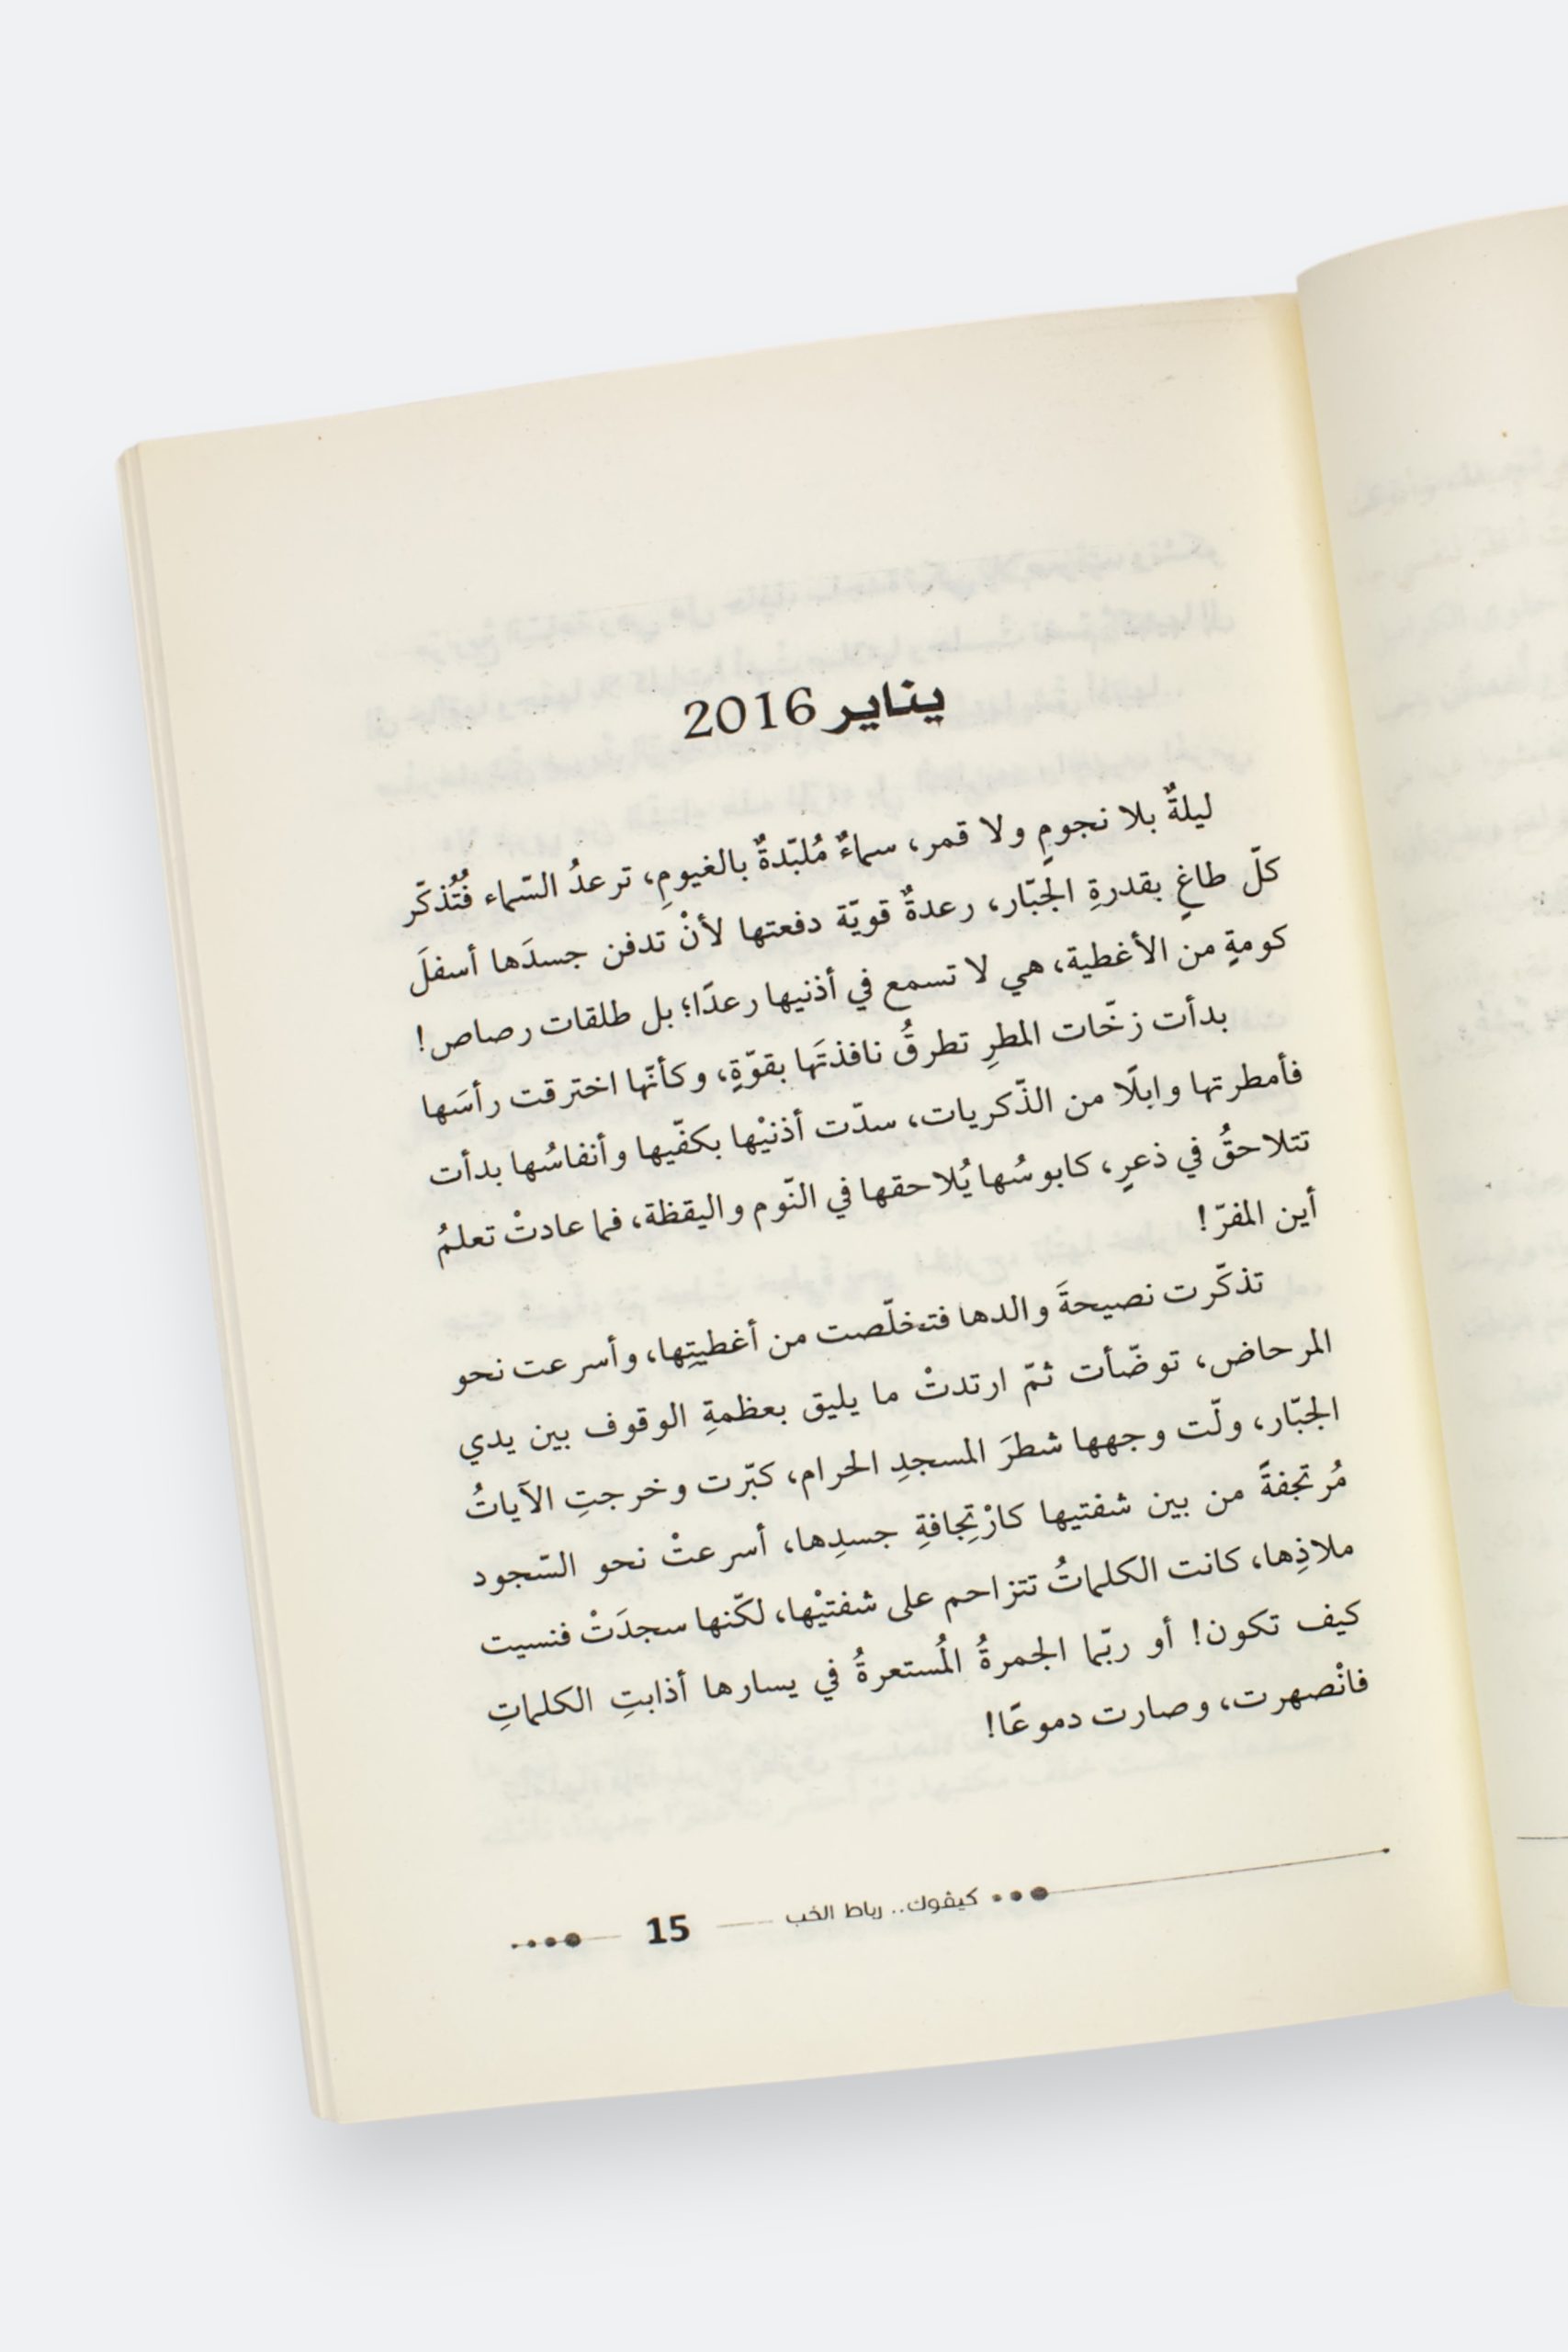 يناير 2016
ليلةٌ بلا نجومٍ ولا قمر، سماءٌ مُلبّدةٌ بالغيومِ، ترعدُ السّماء فتُذكّر
كلّ طاغٍ بقدرةِ الجبّار، رعدةٌ قويّة دفعتها لأنْ تدفن جسدَها أسفلَ
كومةٍ من الأغطية، هي لا تسمع في أذنيها رعدًا؛ بل طلقات رصاص!
بدأت زخّات المطرِ تطرقُ نافذتَها بقوّةٍ، وكأنّها اخترقت رأسَها
فأمطرتها وابلًا من الذّكريات، سدّت أذنيْها بكفّيها وأنفاسُها بدأت
تتلاحقُ في ذعرٍ، كابوسُها يُلاحقها في النّوم واليقظة، فما عادتْ تعلمُ
أين المفرّ!
تذكّرت نصيحةَ والدها فتخلّصت من أغطيتِها، وأسرعت نحو
المرحاض، توضّأت ثمّ ارتدتْ ما يليق بعظمةِ الوقوف بين يدي
الجبّار، ولّت وجهها شطرَ المسجدِ الحرام، كبّرت وخرجتِ الآياتُ
مُرتجفةً من بين شفتيها كارْتِجافةِ جسدِها، أسرعتْ نحو السّجود
ملاذِها، كانت الكلماتُ تتزاحم على شفتيْها، لكّنها سجدَتْ فنسيت
كيف تكون! أو ربّما الجمرةُ المُستعرةُ في يسارها أذابتِ الكلماتِ
فانْصهرت، وصارت دموعًا!
كيفوك.. رباط الخب 15